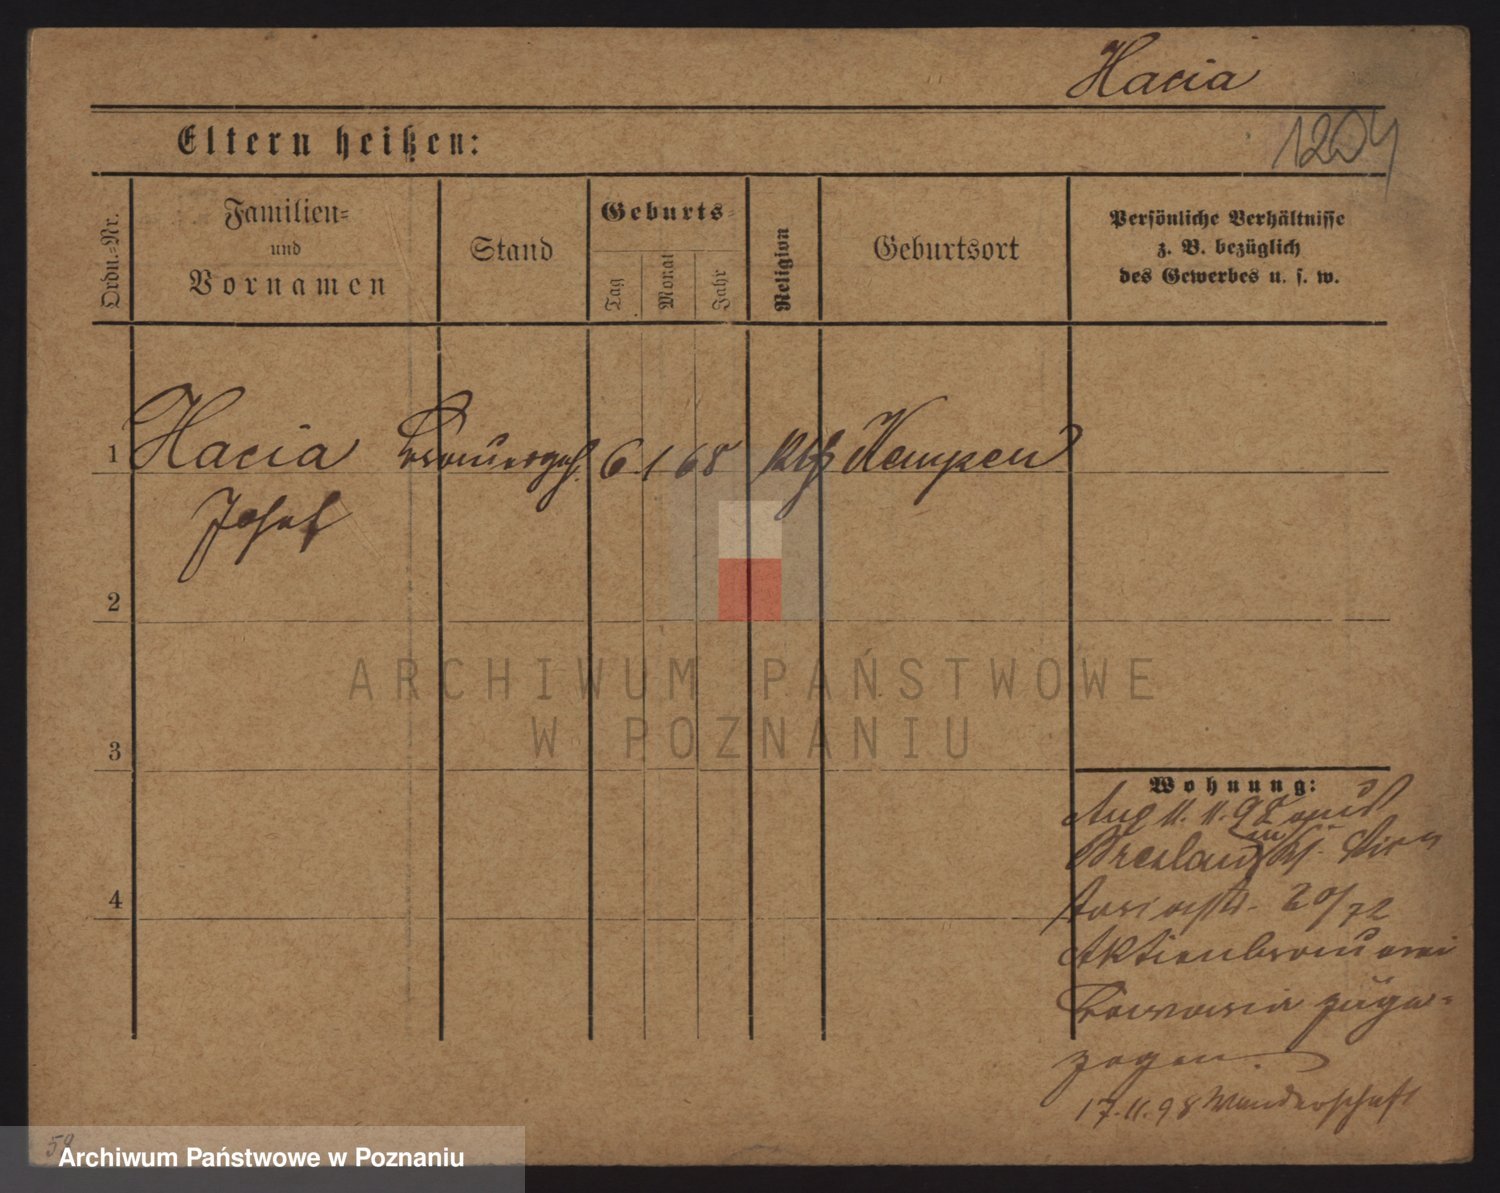 Hacia
Eltern heißen:
1204
Ordn.-Nr.
Familien-
und
Vornamen
Stand
Geburts-
Tag
Monat
Jahr
Religion
Geburtsort
Persönliche Verhältnisse
z. B. bezüglich
des Gewerbes u. s. w.
1 Hacia Brauergeh. 6 1 68 Kth Kempen
Josef
2
ARCHIWUM PAŃSTWOWE
W POZNANIU
3
Wohnung:
Ang 11.11.98
Breslau
20/72
Aktienbrauerei
Bavaria zuge-
zogen.
4
17.11.98 Wanderschaft
58
Archiwum Państwowe w Poznaniu